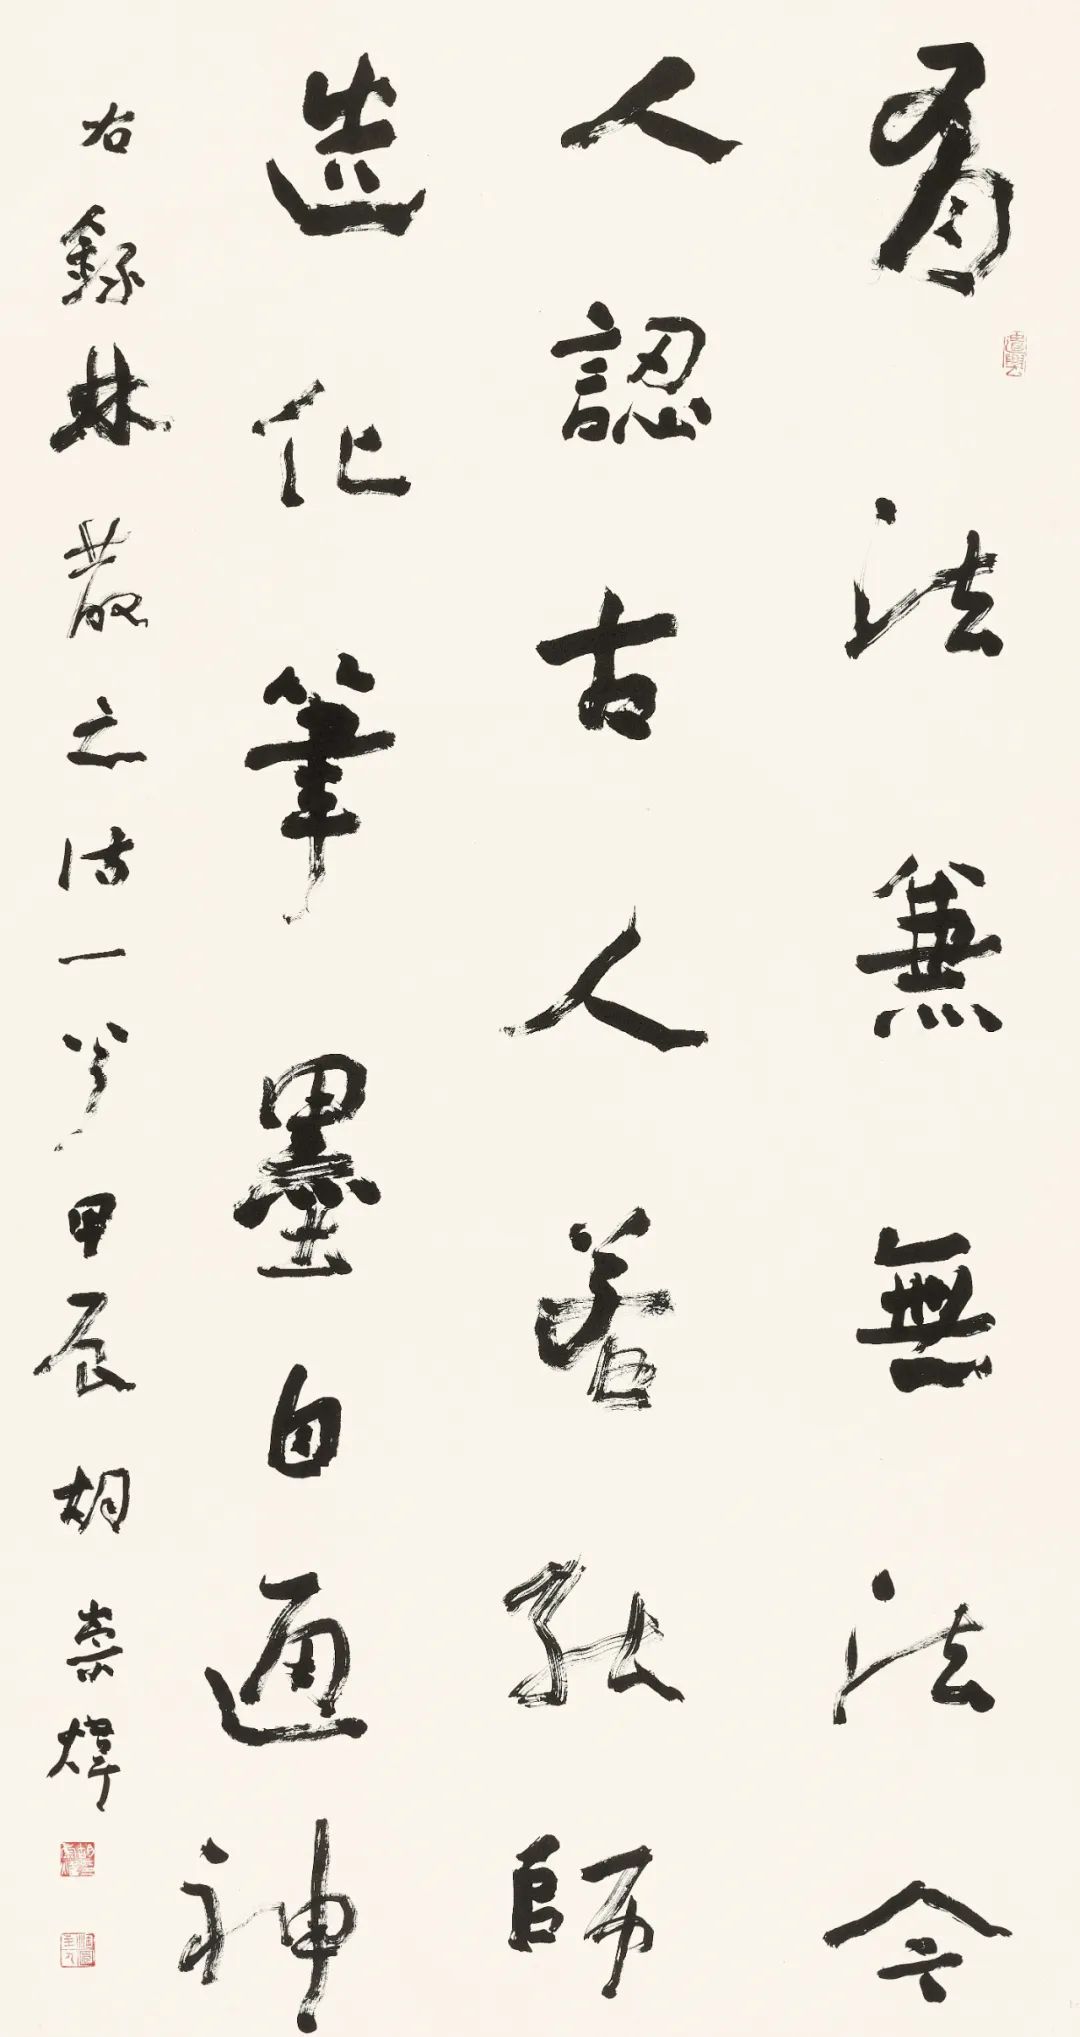 有法兼無法今
人認古人若能師
造化筆墨自通神
右錄林散之詩一首甲辰胡崇煒